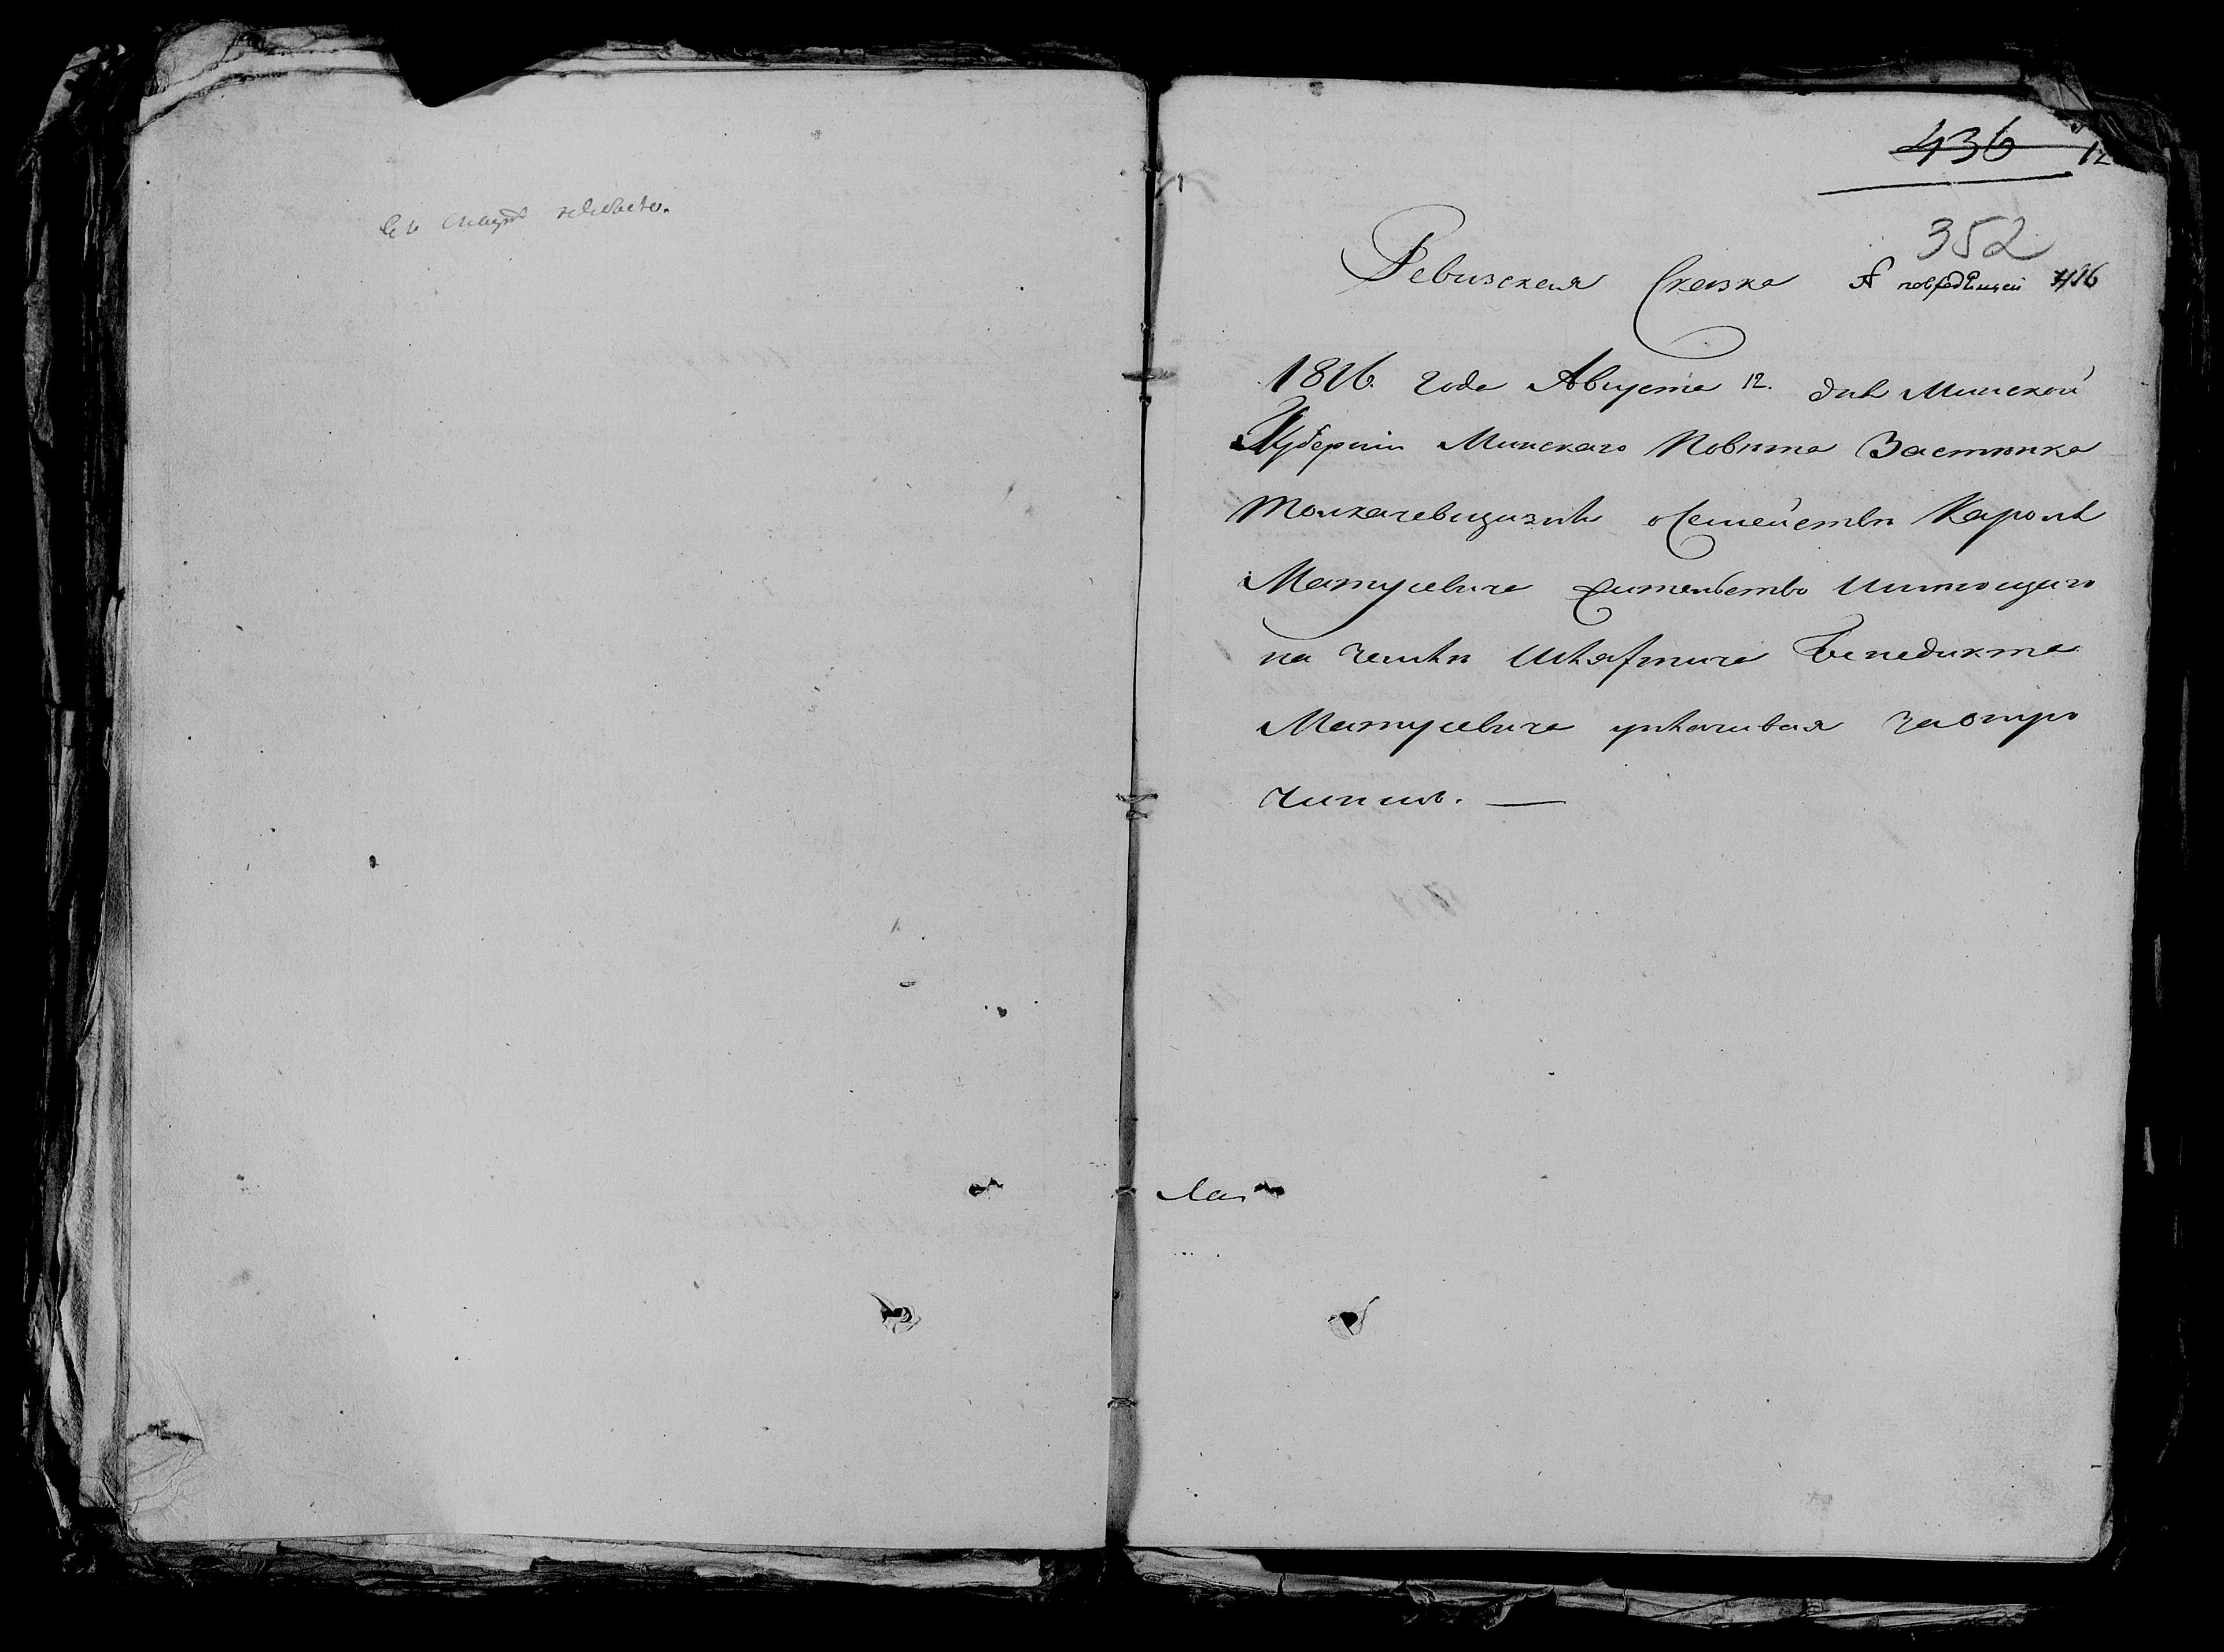 436 12
352
Ревизская Сказка
1816 года Августа 12. дня Минской
Губернии Минскаго Повѣта Застѣнка
Толкачевщизны о Семействѣ Кароля
Матусевича жительство имѣющаго
на земли Шляхтича Бенедикта
Матусевича уплачивая
чиншъ. —
Ла